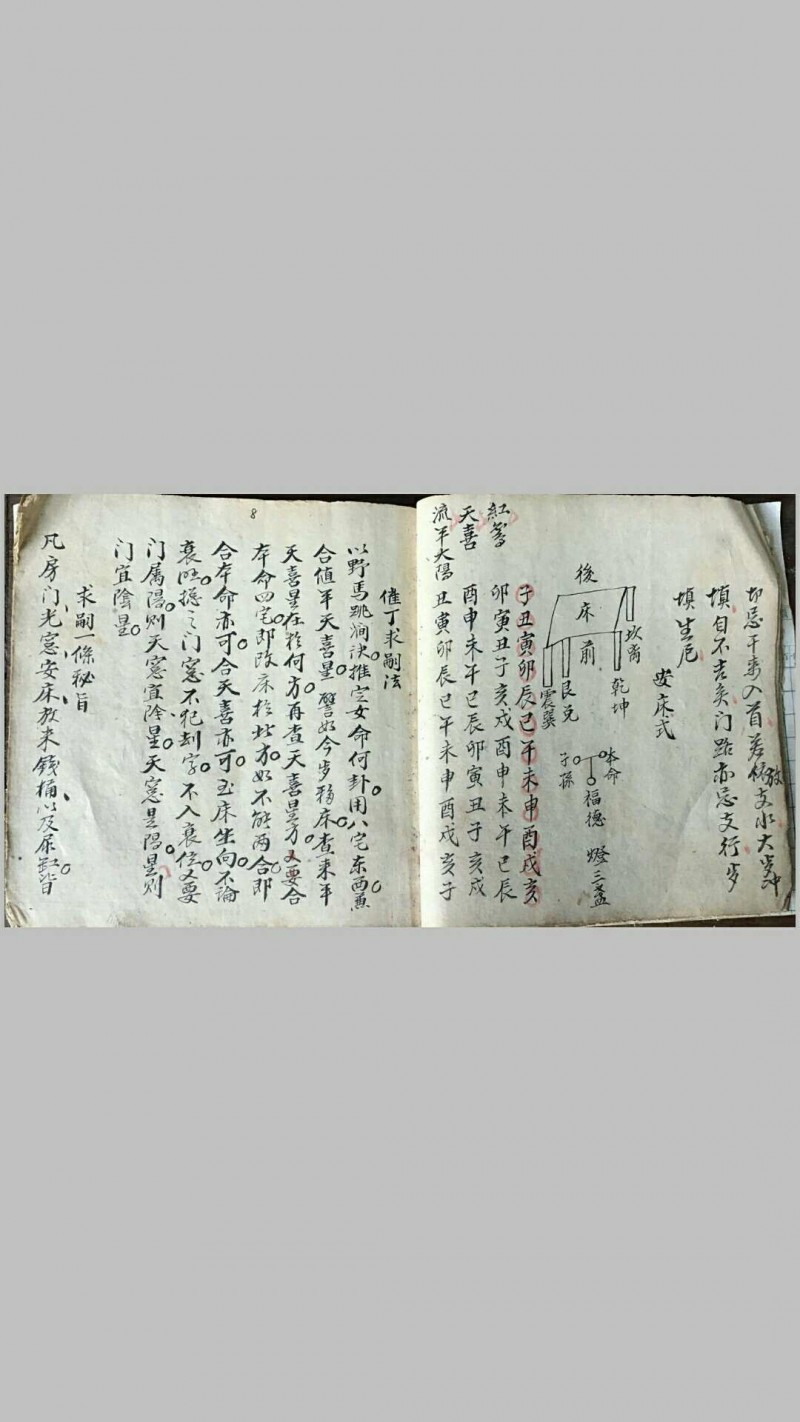 切忌干来入首若依放支水大步冲
填自不吉矣门路亦忌支行步
填生尅
安床式
後
床
前
坎离
乾坤
艮兑
震巽
本命
福德 燈三盏
子孫
子丑寅卯辰巳午未申酉戌亥
紅鸞 卯寅丑子亥戌酉申未午巳辰
天喜 酉申未午巳辰卯寅丑子亥戌
流年太陽 丑寅卯辰巳午未申酉戌亥子
8
催丁求嗣法
以野馬跳澗诀推定女命何卦用八宅东西兼
合值年天喜星譬如今步移床查来年
天喜星在於何方再查天喜星方又要合
本命四宅即改床於此方如不能两合即
合本命亦可合天喜亦可至床坐向不論
衰旺揔之门窓不犯刦字不入衰位又要
门属陽则天窓宜陰星天窓是陽星则
门宜陰星
求嗣一條秘旨
凡房门光窓安床放来錢桶以及尿缸皆